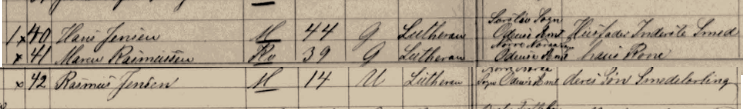 1 x 40 Hans Jensen M 44 G Lutheran Odense Amt Huusfader Inderste Smed
x 41 Maren Rasmussen Kv 39 G Lutheran Odense Amt hans Kone
x 42 Rasmus Jensen M 14 U Lutheran Sogn Odense Amt deres Søn Smedelærling